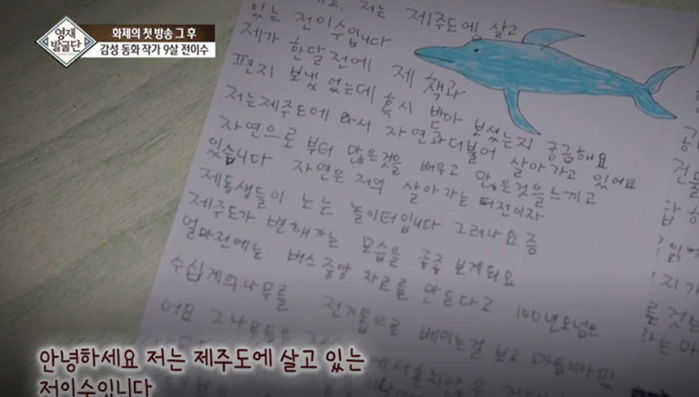 영재
발굴단
화제의 첫 방송 그 후
감성 동화 작가 9살 전이수
저는 제주도에 살고
있는 전이수입니다
제가 한달전에 제 책과
편지 보냈었는데 혹시 받아 보셨는지 궁금해요
저는 제주도에 와서 자연과 더불어 살아가고 있어요
자연으로 부터 많은것을 배우고 많은것을 느끼고
있습니다 자연은 저의 살아가는 터전이자
제동생들이 노는 놀이터입니다 그러나 요즘
제주도가 변해가는 모습을 종종 보게되요
얼마전에는 버스중앙 차로를 만든다고 100년도넘은
수십게의나무를 전기톱으로 베이는걸 보고 마음이아팠
어요 그나무들을
안녕하세요 저는 제주도에 살고 있는
전이수입니다